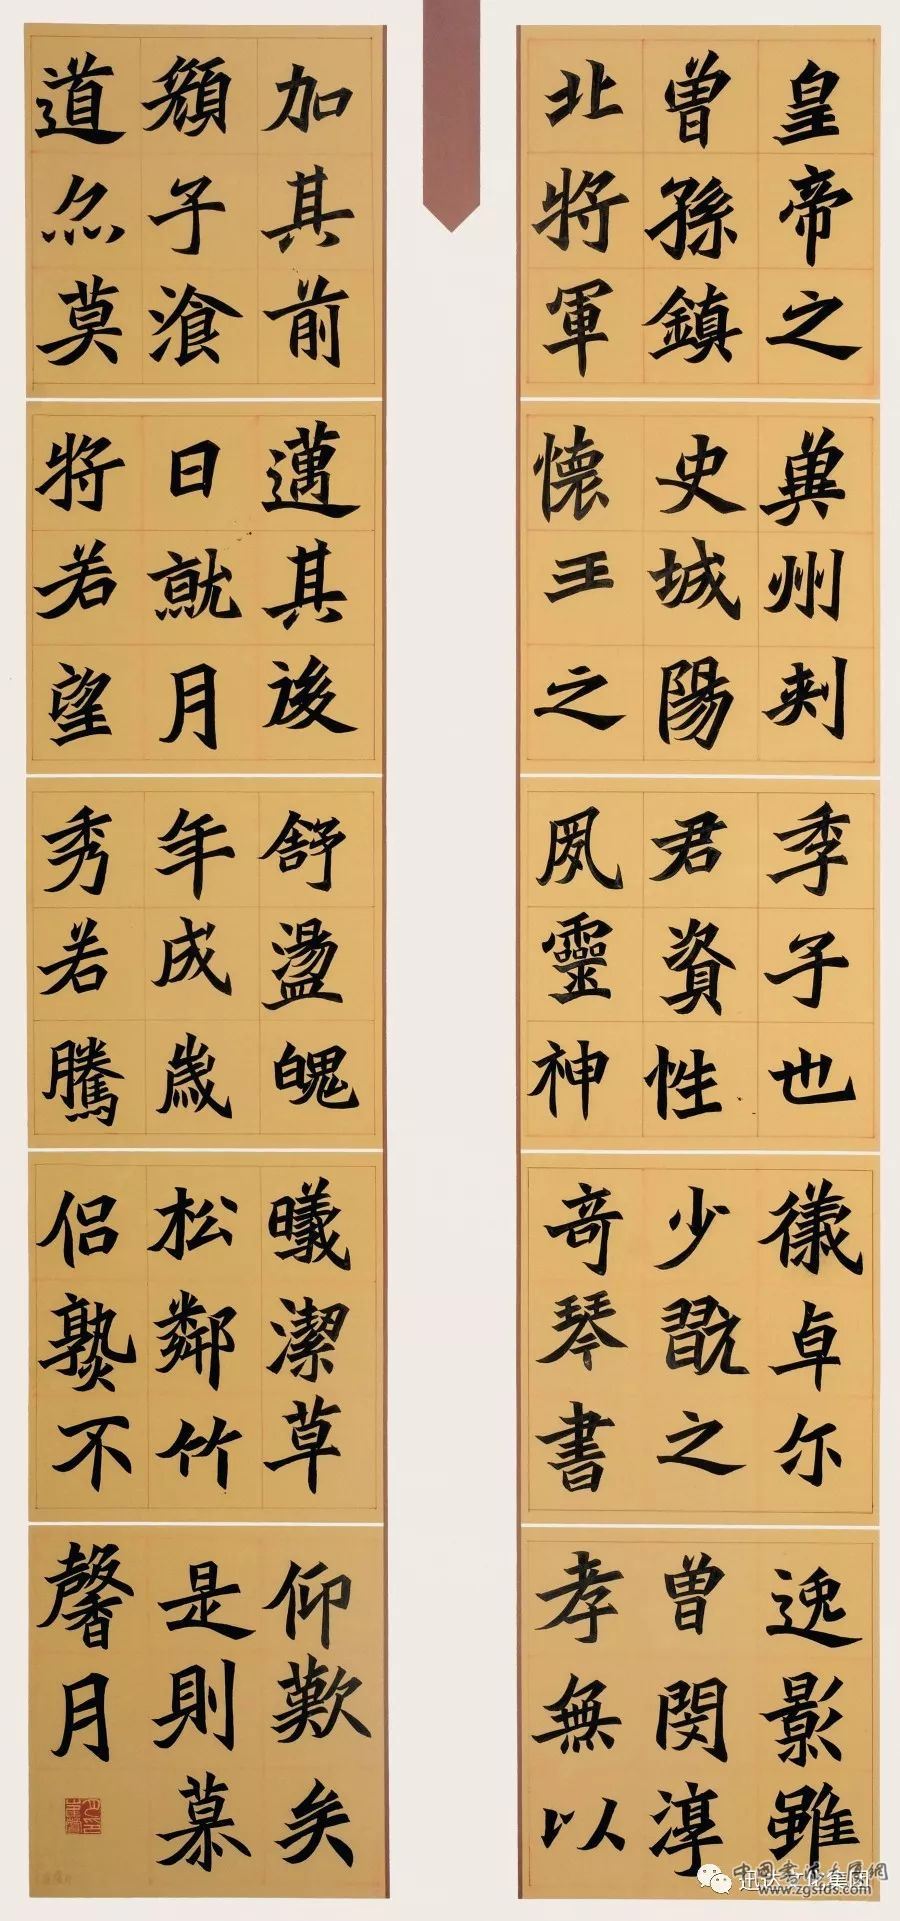 皇帝之
曾孫鎮
北將軍
冀州刺
史城陽
懷王之
季子也
君資性
夙靈神
儀卓尔
少翫之
奇琴書
逸影雖
曾閔淳
孝無以
加其前
顏子湌
道亦莫
邁其後
日就月
將若望
舒盪魄
年成歲
秀若騰
曦潔草
松鄰竹
侶熟不
仰歎矣
是則慕
馨月
迅达文化集团
中国书法大展網
www.zgsfds.com